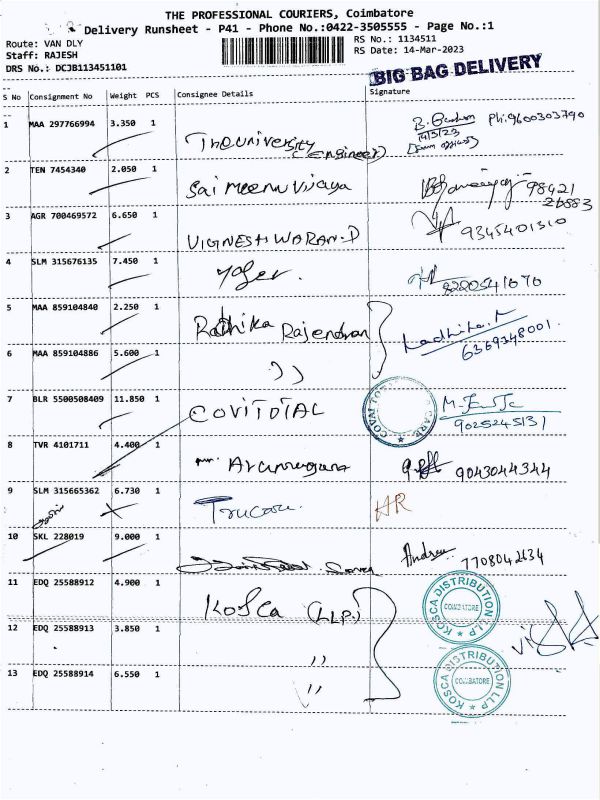 THE PROFESSIONAL COURIERS, Coimbatore
Delivery Runsheet - P41 - Phone No.:0422-3505555 - Page No.:1
Route: VAN DLY
Staff: RAJESH
DRS No.: DCJB113451101
RS No.: 1134511
RS Date: 14-Mar-2023
BIG BAG DELIVERY
S No Consignment No Weight PCS Consignee Details Signature
1 MAA 297766994 3.350 1 The university (Engineer) Ph: 9600303790
14/3/23
2 TEN 7454340 2.050 1 Sai Meenu Vijaya 98421
26883
3 AGR 700469572 6.650 1 VIGNESHWARAN.D 9345401310
4 SLM 315676135 7.450 1
5 MAA 859104840 2.250 1 Radhika Rajendran Radhika.R
6369348001
6 MAA 859104886 5.600 1 ))
7 BLR 5500508409 11.850 1 COVITOTAL
9025245131
8 TVR 4101711 4.400 1 Mr. Arumugam 9043044344
9 SLM 315665362 6.730 1 Trucare HR
10 SKL 228019 9.000 1 Andrew 7708042134
11 EDQ 25588912 4.900 1 Kosca (LLP.) KOSCA DISTRIBUTION LLP COIMBATORE
12 EDQ 25588913 3.850 1 ))
13 EDQ 25588914 6.550 1 )) KOSCA DISTRIBUTION LLP COIMBATORE